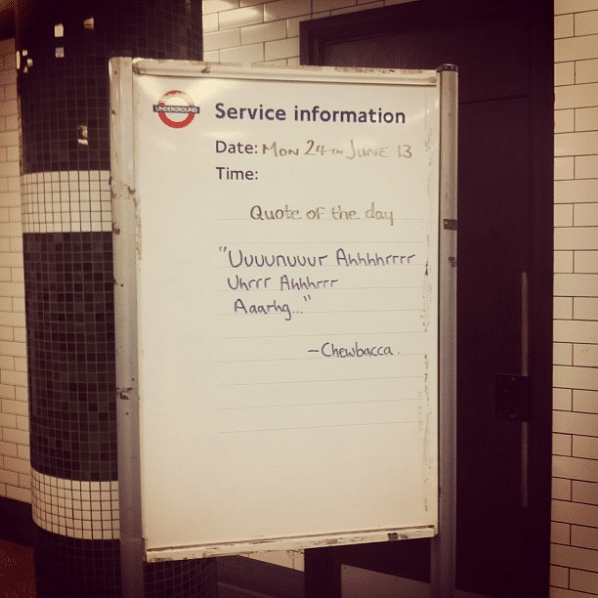 UNDERGROUND
Service information
Date: MON 24TH JUNE 13
Time:
Quote of the day
"Uuuunuuur Ahhhhrrrr
Uhrrr Ahhhrrr
Aaarhg..."
-Chewbacca.